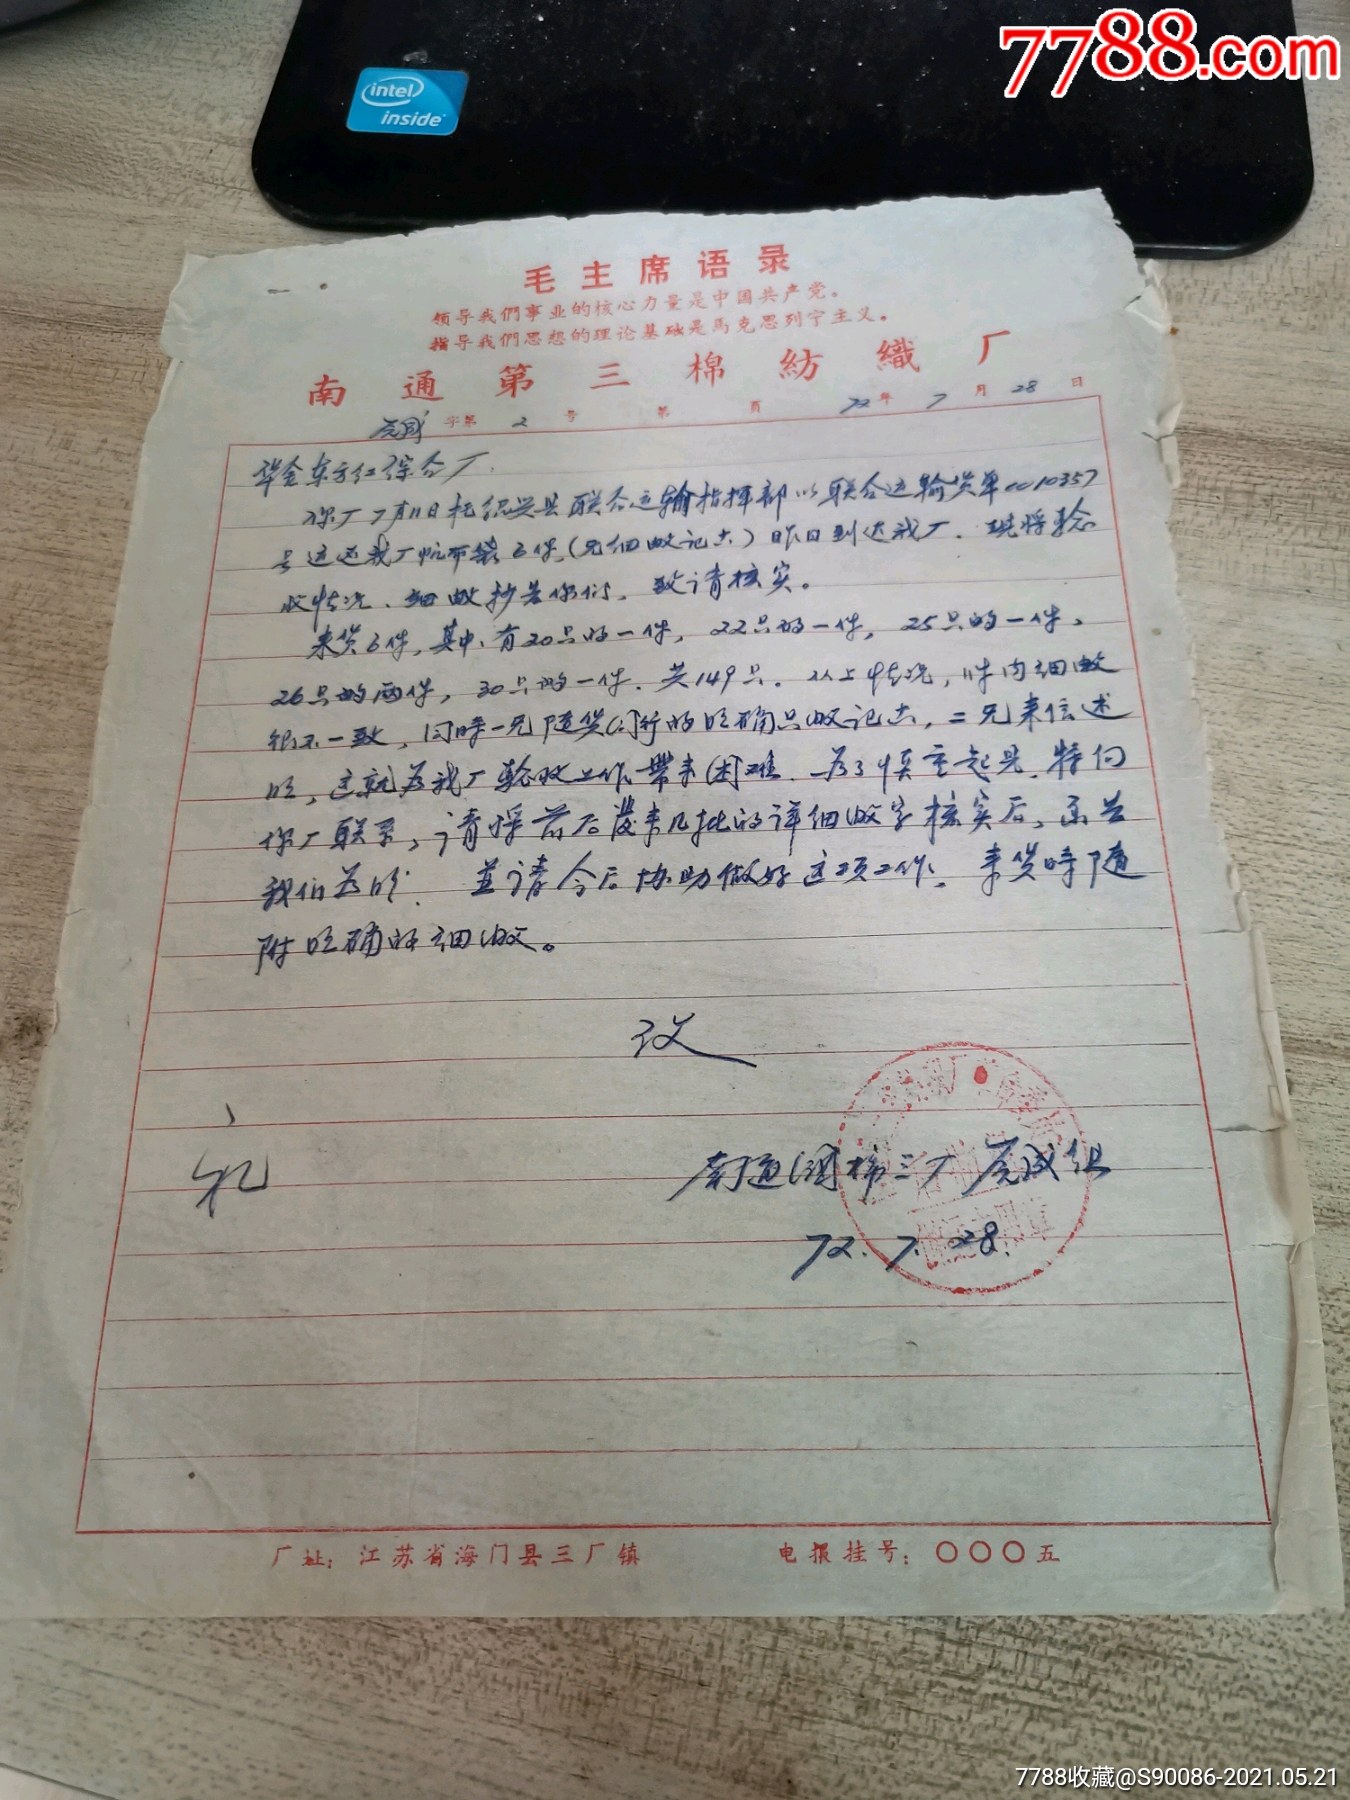 7788.com
intel
inside
毛主席语录
领导我們事业的核心力量是中国共产党。
指导我們思想的理论基础是馬克思列宁主义。
南通第三棉紡織厂
完成 字第 2 号 第 頁 72年 7月 28日
华舍东方红综合厂.
你厂7月11日托绍兴县联合运输指挥部以联合运输货单0010357
号运还我厂帆布袋6件,(无细数记点)昨日到达我厂. 现将验
收情况、细数抄告你们, 致请核实。
来货6件,其中:有20只的一件, 22只的一件, 25只的一件、
26只的两件, 30只的一件. 共149只. 以上情况, 件内细数
很不一致, 同时一无随货同行的明确只数记点, 二无来信述
明, 这就为我厂验收工作带来困难. 为了慎重起见. 特向
你厂联系, 请将前后发来几批的详细数字核实后, 函告
我们为盼. 並请今后协助做好这项工作. 来货时随
附明确的细数。
致
礼
南通国棉三厂完成组
72.7.28.
厂址: 江苏省海门县三厂镇 电报挂号: 〇〇〇五
7788收藏@S90086-2021.05.21